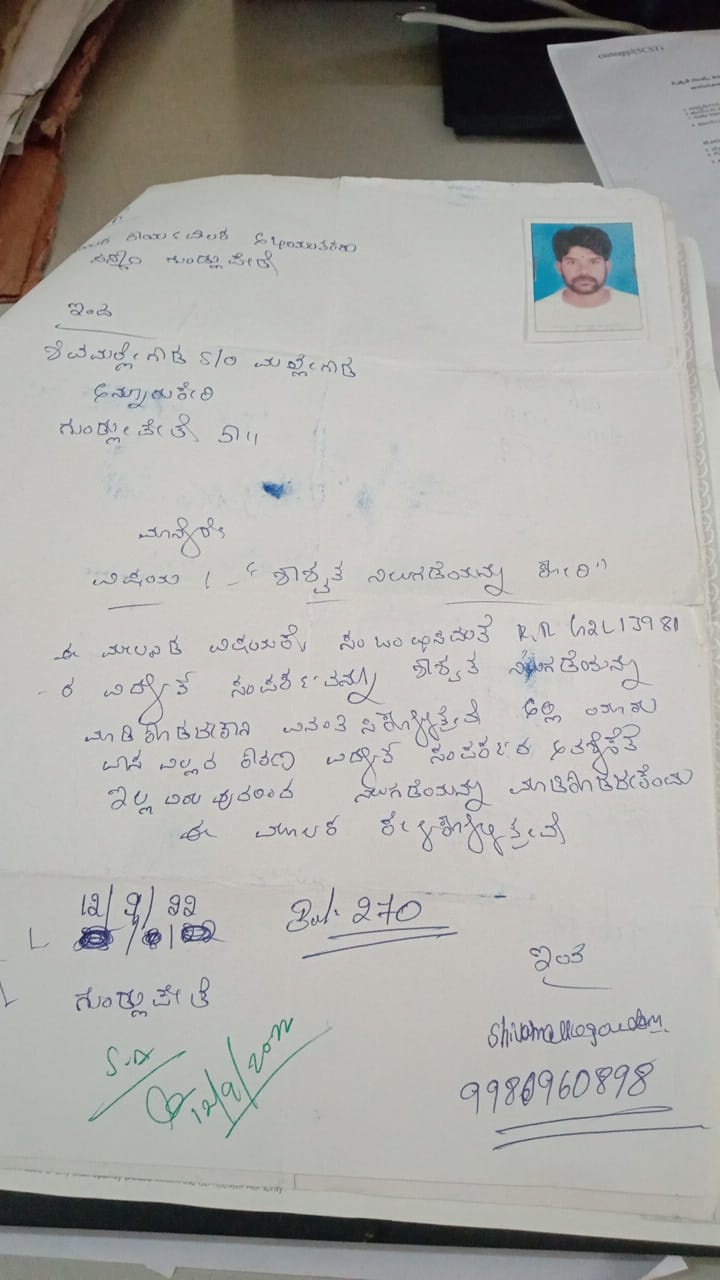 casteappl(SCST)
ಕಾರ್ಯ
ಗುಂಡ್ಲುಪೇಟೆ
ಇಂದ
ಶಿವಮಲ್ಲೇಗೌಡ S/O ಮಲ್ಲೇಗೌಡ
ಗುಂಡ್ಲುಪೇಟೆ ತಾ॥
ಮಾನ್ಯರೇ
ವಿಷಯ :- "ಶಾಶ್ವತ ನಿಲುಗಡೆಯನ್ನು ಕೋರಿ"
ಈ ಮೇಲಂಡ ವಿಷಯಕ್ಕೆ ಸಂಬಂಧಿಸಿದಂತೆ R.R G2L13981
ರ ವಿದ್ಯುತ್ ಸಂಪರ್ಕವನ್ನು ಶಾಶ್ವತ ನಿಲುಗಡೆಯನ್ನು
ಮಾಡಿಕೊಡಬೇಕಾಗಿ ವಿನಂತಿಸಿಕೊಳ್ಳುತ್ತೇವೆ ಅಲ್ಲಿ ಯಾರು
ವಾಸವಿಲ್ಲದ ಕಾರಣ ವಿದ್ಯುತ್ ಸಂಪರ್ಕದ ಅವಶ್ಯಕತೆ
ಇಲ್ಲದಿರುವುದರಿಂದ ನಿಲುಗಡೆಯನ್ನು ಮಾಡಿಕೊಡಬೇಕೆಂದು
ಈ ಮೂಲಕ ಕೇಳಿಕೊಳ್ಳುತ್ತೇವೆ
12/9/22
Bal: 270
ಇಂತಿ
ಗುಂಡ್ಲುಪೇಟೆ
Shivamallegowda.M
12/9/2022
9980960898